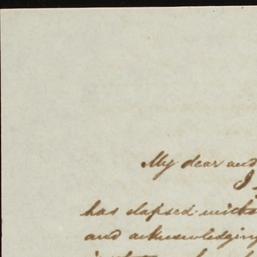 My dear and
I
has elapsed without
and acknowledging